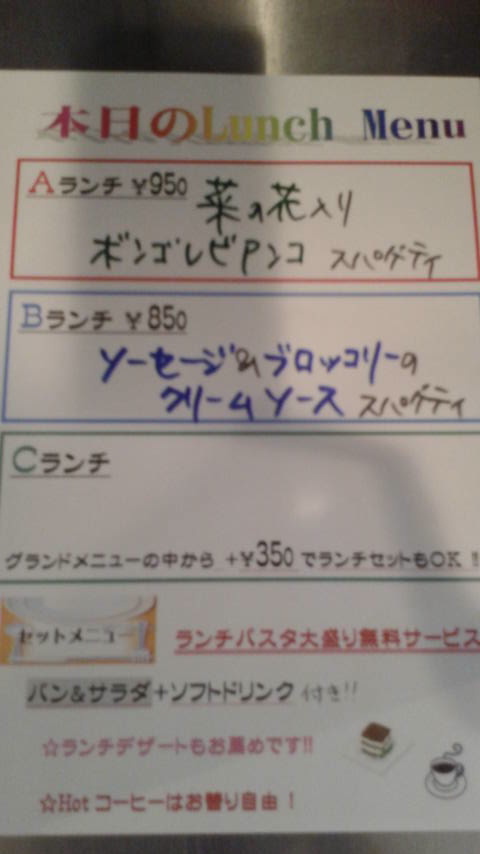 本日のLunch Menu
Aランチ ¥950 菜の花入り
ボンゴレビアンコ スパゲティ
Bランチ ¥850
ソーセージ&ブロッコリーの
クリームソース スパゲティ
Cランチ
グランドメニューの中から +¥350 でランチセットもOK !!
セットメニュー
ランチパスタ大盛り無料サービス
パン&サラダ+ソフトドリンク 付き!!
☆ランチデザートもお薦めです!!
☆Hot コーヒーはお替り自由！